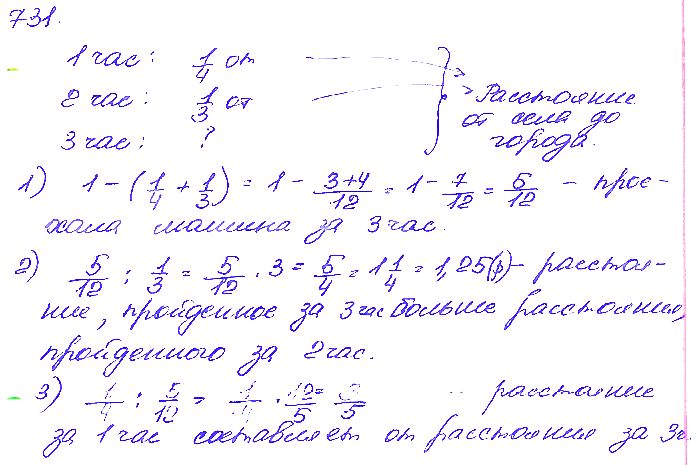 731.
1 час: 1/4 от
2 час: 1/3 от
3 час: ?
Расстояние
от села до
города.
1) 1 - (1/4 + 1/3) = 1 - (3+4)/12 = 1 - 7/12 = 5/12 - прое-
хала машина за 3 час.
2) 5/12 : 1/3 = 5/12 · 3 = 5/4 = 1 1/4 = 1,25(р) - расстоя-
ние, пройденное за 3 час больше расстояния,
пройденного за 2 час.
3) 1/4 : 5/12 = 1/4 · 12/5 = 3/5 расстояние
за 1 час составляет от расстояния за 3 ч.